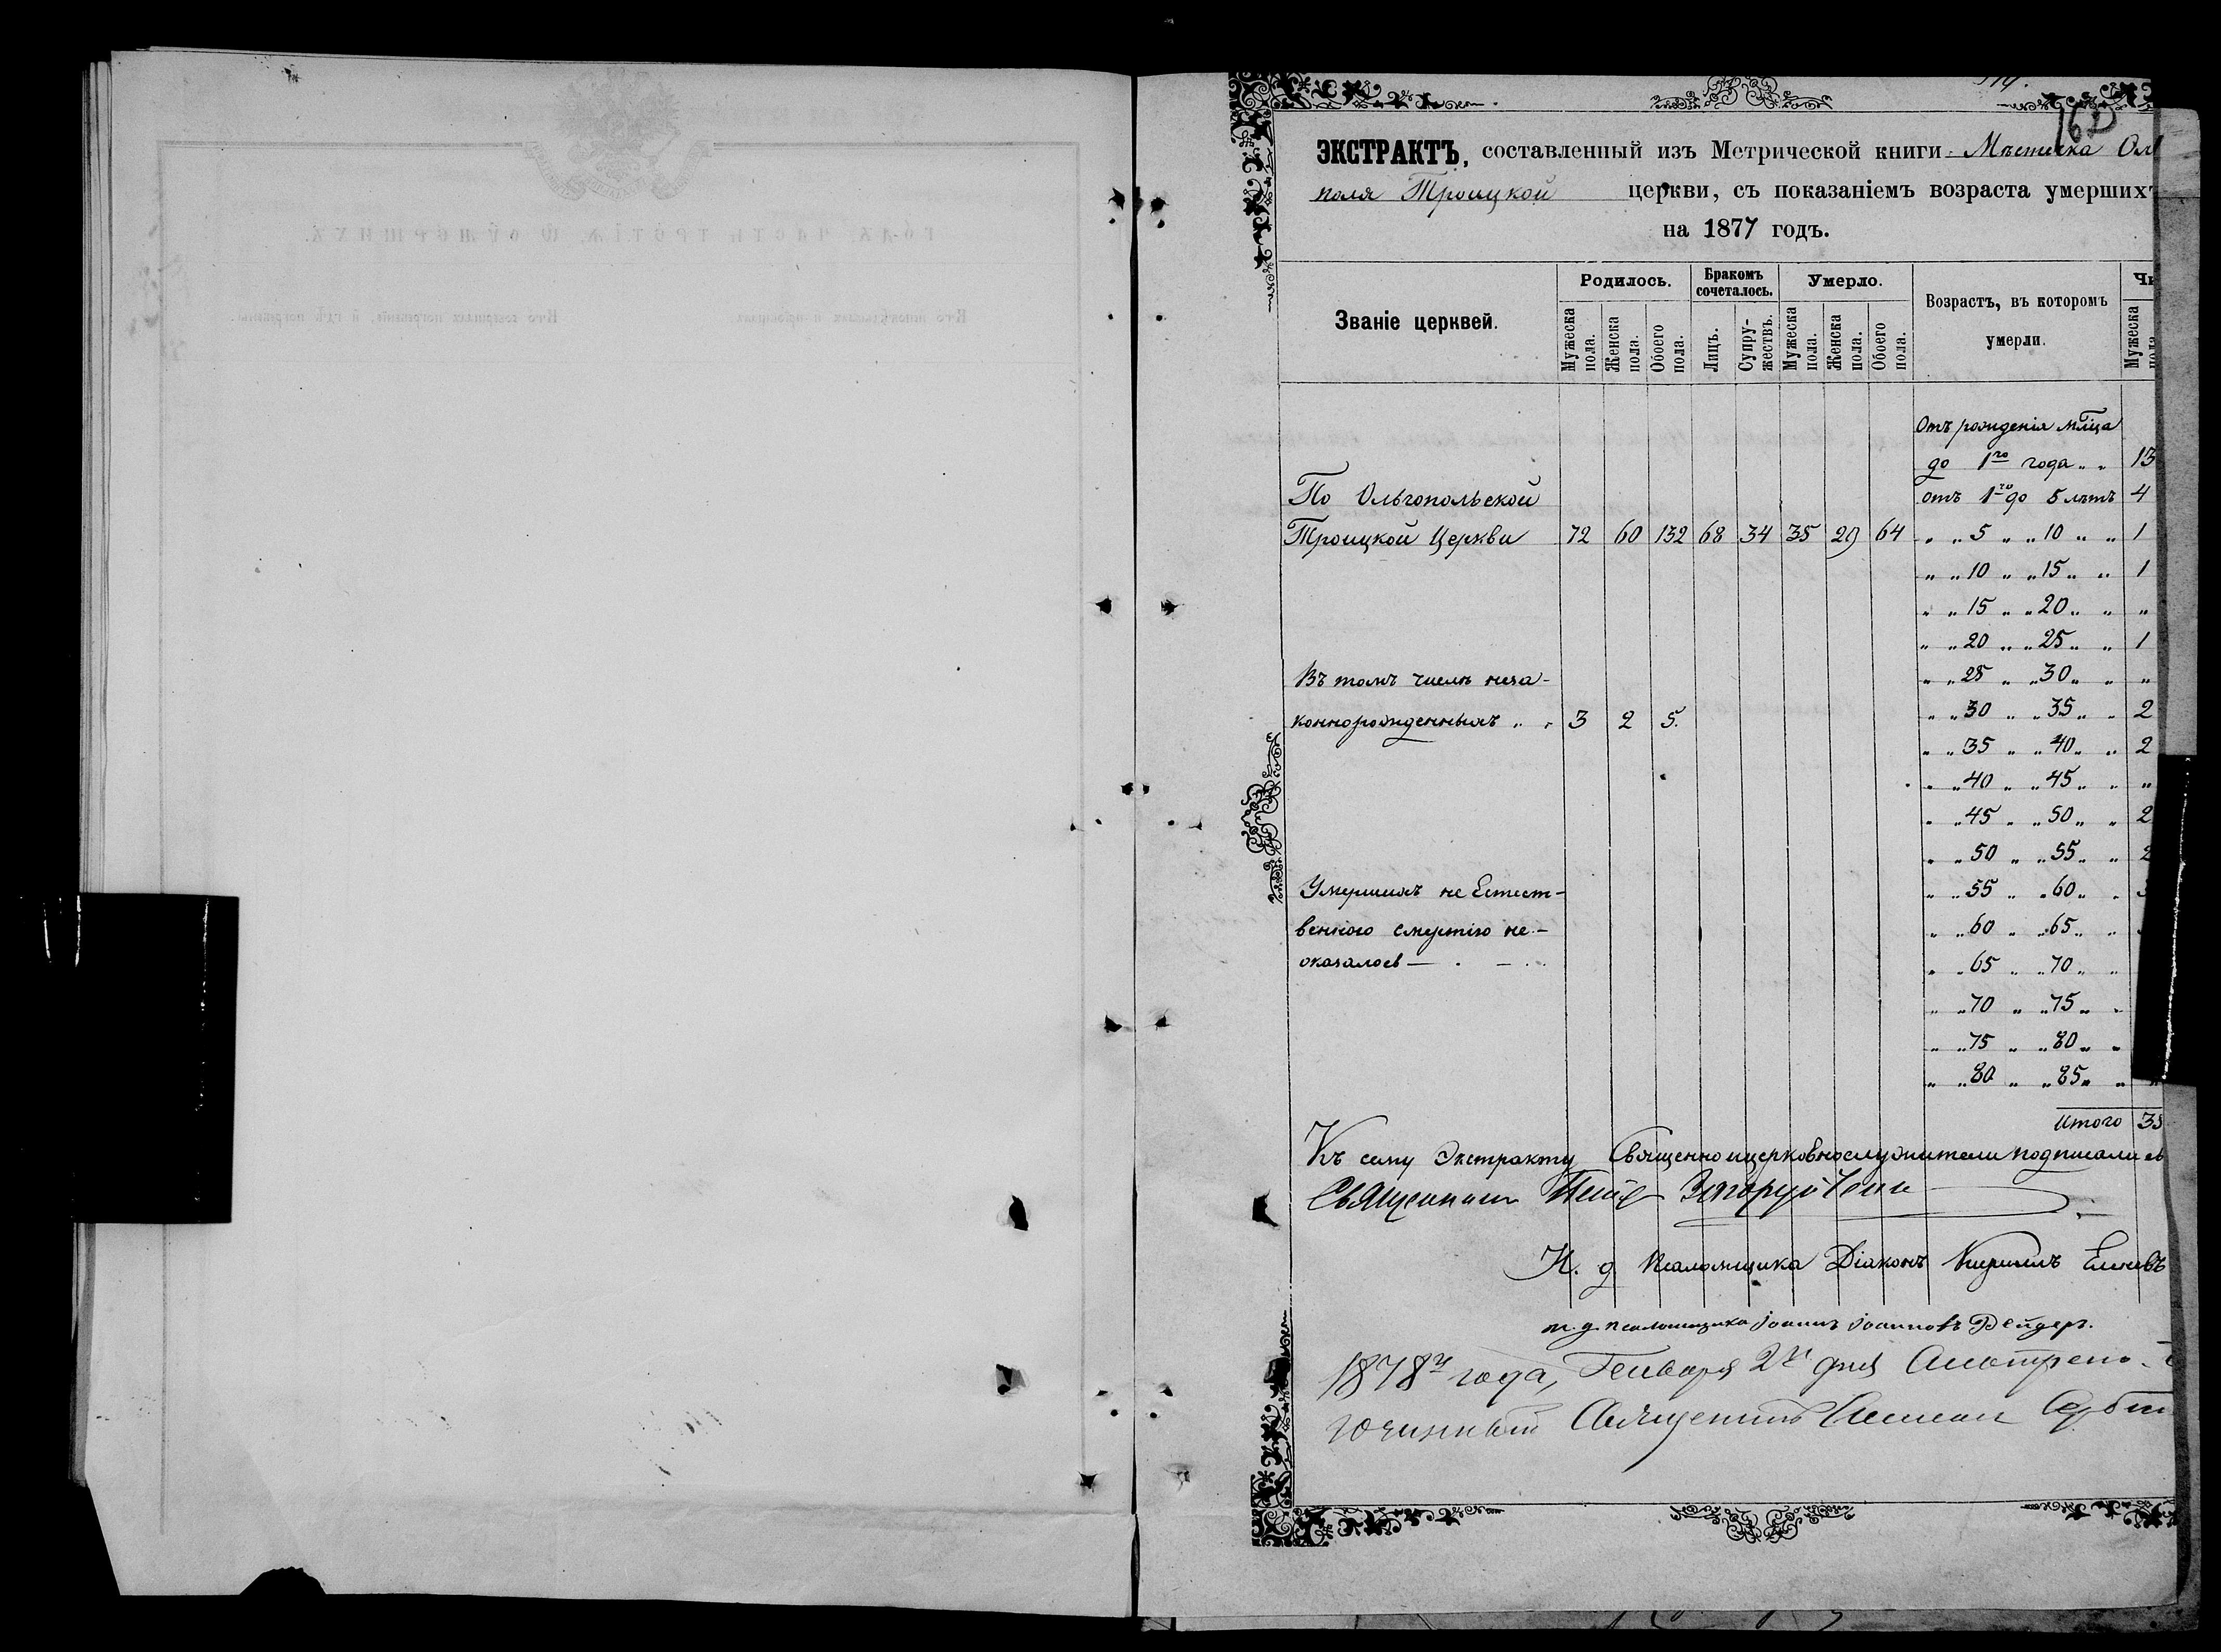 162
ЭКСТРАКТЪ, составленный изъ Метрической книги Мѣстечка Оль
поля Троицкой церкви, съ показаніемъ возраста умершихъ
на 1877 годъ.
Званіе церквей.
Родилось.
Бракомъ сочеталось.
Умерло.
Возрастъ, въ которомъ
умерли.
Мужеска пола.
Женска пола.
Обоего пола.
Лицъ.
Супружествъ.
Мужеска пола.
Женска пола.
Обоего пола.
Мужеска
Отъ рожденія
до 1го года „ „ 13
По Ольгопольской
отъ 1го до 5 лѣтъ 4
Троицкой Церкви 72 60 132 68 34 35 29 64
„ „ 5 „ „ 10 „ „ 1
„ „ 10 „ „ 15 „ „ 1
„ „ 15 „ „ 20 „ „ „
„ „ 20 „ „ 25 „ „ 1
Въ томъ числѣ неза-
„ „ 25 „ „ 30 „ „ „
коннорожденныхъ „ „ 3 2 5.
„ „ 30 „ „ 35 „ „ 2
„ „ 35 „ „ 40 „ „ 2
„ „ 40 „ „ 45 „ „ „
„ „ 45 „ „ 50 „ „ 2
„ „ 50 „ „ 55 „ „ 2
Умершихъ не Естест-
„ „ 55 „ „ 60 „ „
венною смертію не-
„ „ 60 „ „ 65 „ „
оказалось
„ „ 65 „ „ 70 „ „
„ „ 70 „ „ 75 „ „
„ „ 75 „ „ 80 „ „
„ „ 80 „ „ 85 „ „
Итого 35
Къ сему Экстракту Священноицерковнослужители подписались
Священникъ Петръ Загоруйченко
И. д. Псаломщика Діаконъ Кириллъ
и. д. псаломщика Іоаннъ Іоанновъ Рейдеръ.
1878го года, Генваря 2го дня Смотрено
Священникъ